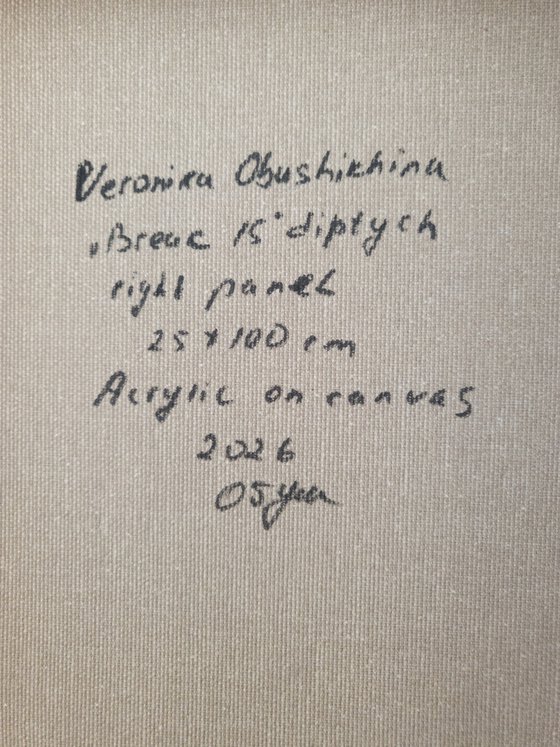 Veronika Obushikhina
„Breac 15" diptych
right panel
25 x 100 cm
Acrylic on canvas
2026